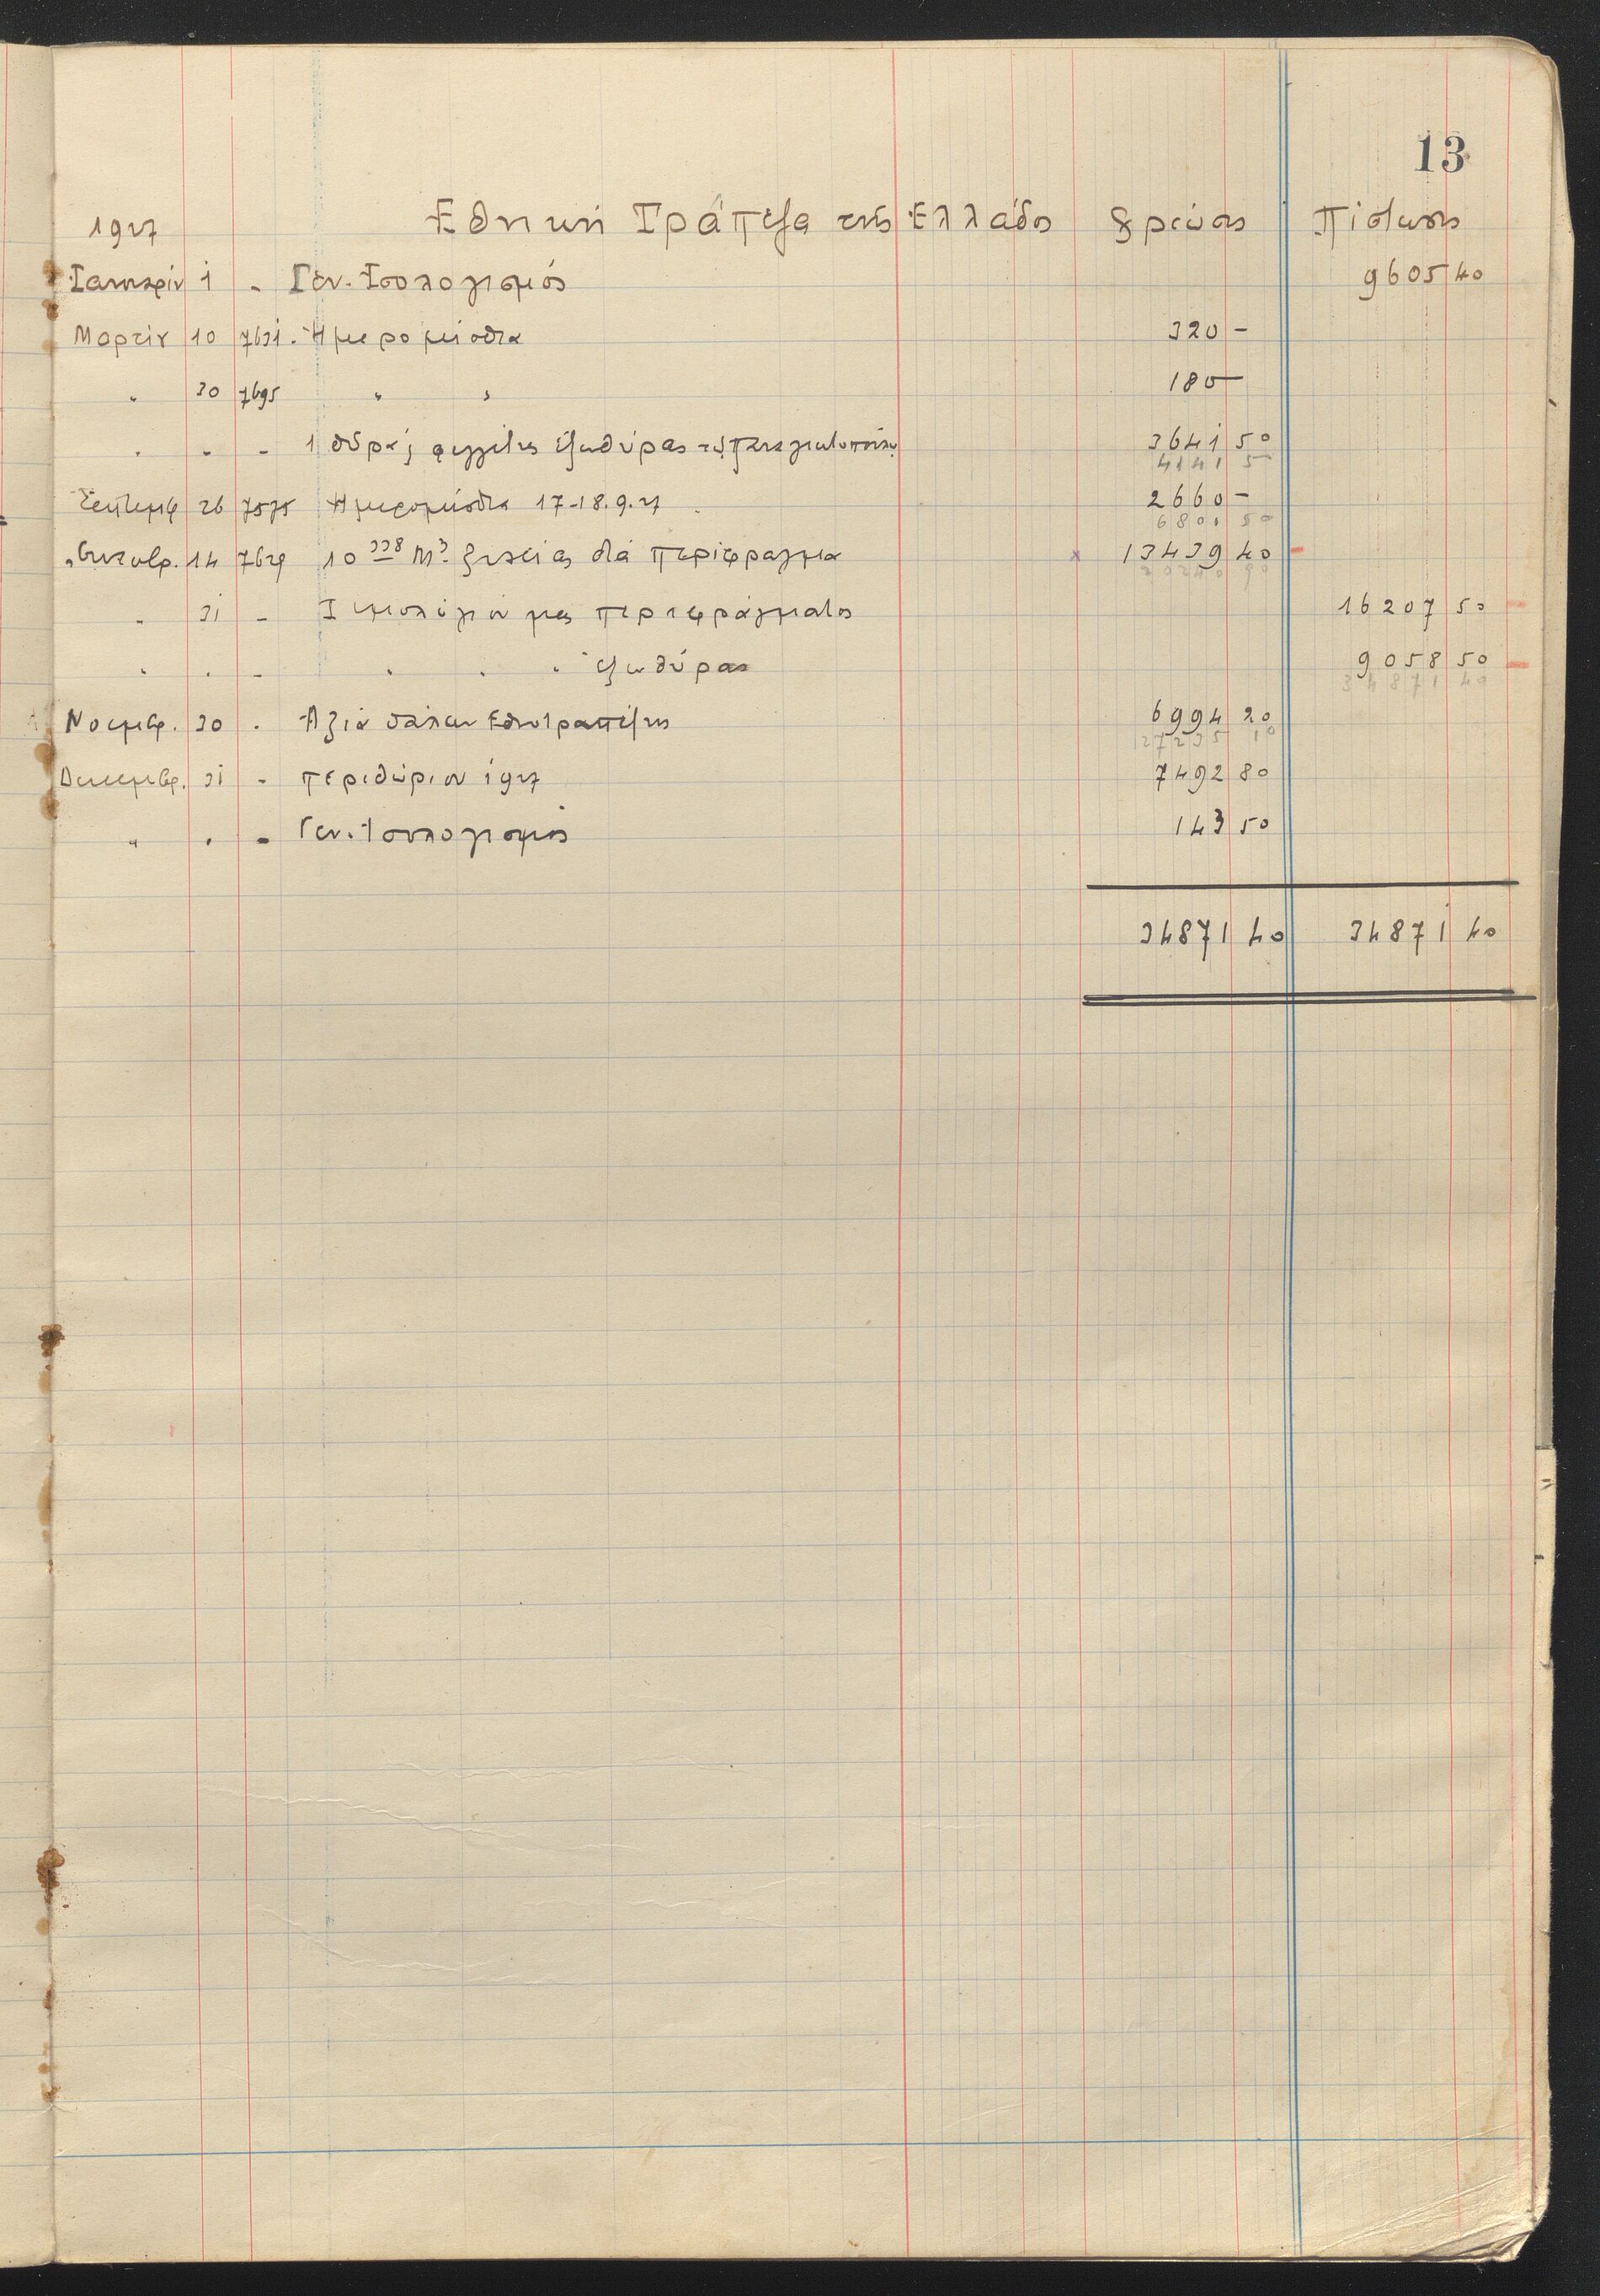 13
1927 Εθνική Τράπεζα της Ελλάδος Χρέωσις Πίστωσις
Ιανουαρίου 1 - Γεν. Ισολογισμός 9605 40
Μαρτίου 10 7631 . Ημερομίσθια 320 -
" 30 7695 " " 180 -
" " - 1 θύρα φεγγίτης εξωθύρας 3641 50
4141 5
Σεπτεμβ 26 7575 Ημερομίσθια 17-18.9.27 2660 -
6801 50
Οκτωβρ. 14 7629 10 338 Μ3 ξυλείας διά περίφραγμα x 13439 40
20240 90
" 31 - Τιμολόγιόν μας περιφράγματος 16207 50
" " - " " " εξωθύρας 9058 50
34871 40
Νοεμβρ. 30 . Αξία Εθν Τραπέζης 6994 20
27235 10
Δεκεμβρ. 31 - περιθώριον 1927 7492 80
" " - Γεν. Ισολογισμός 143 50
34871 40 34871 40